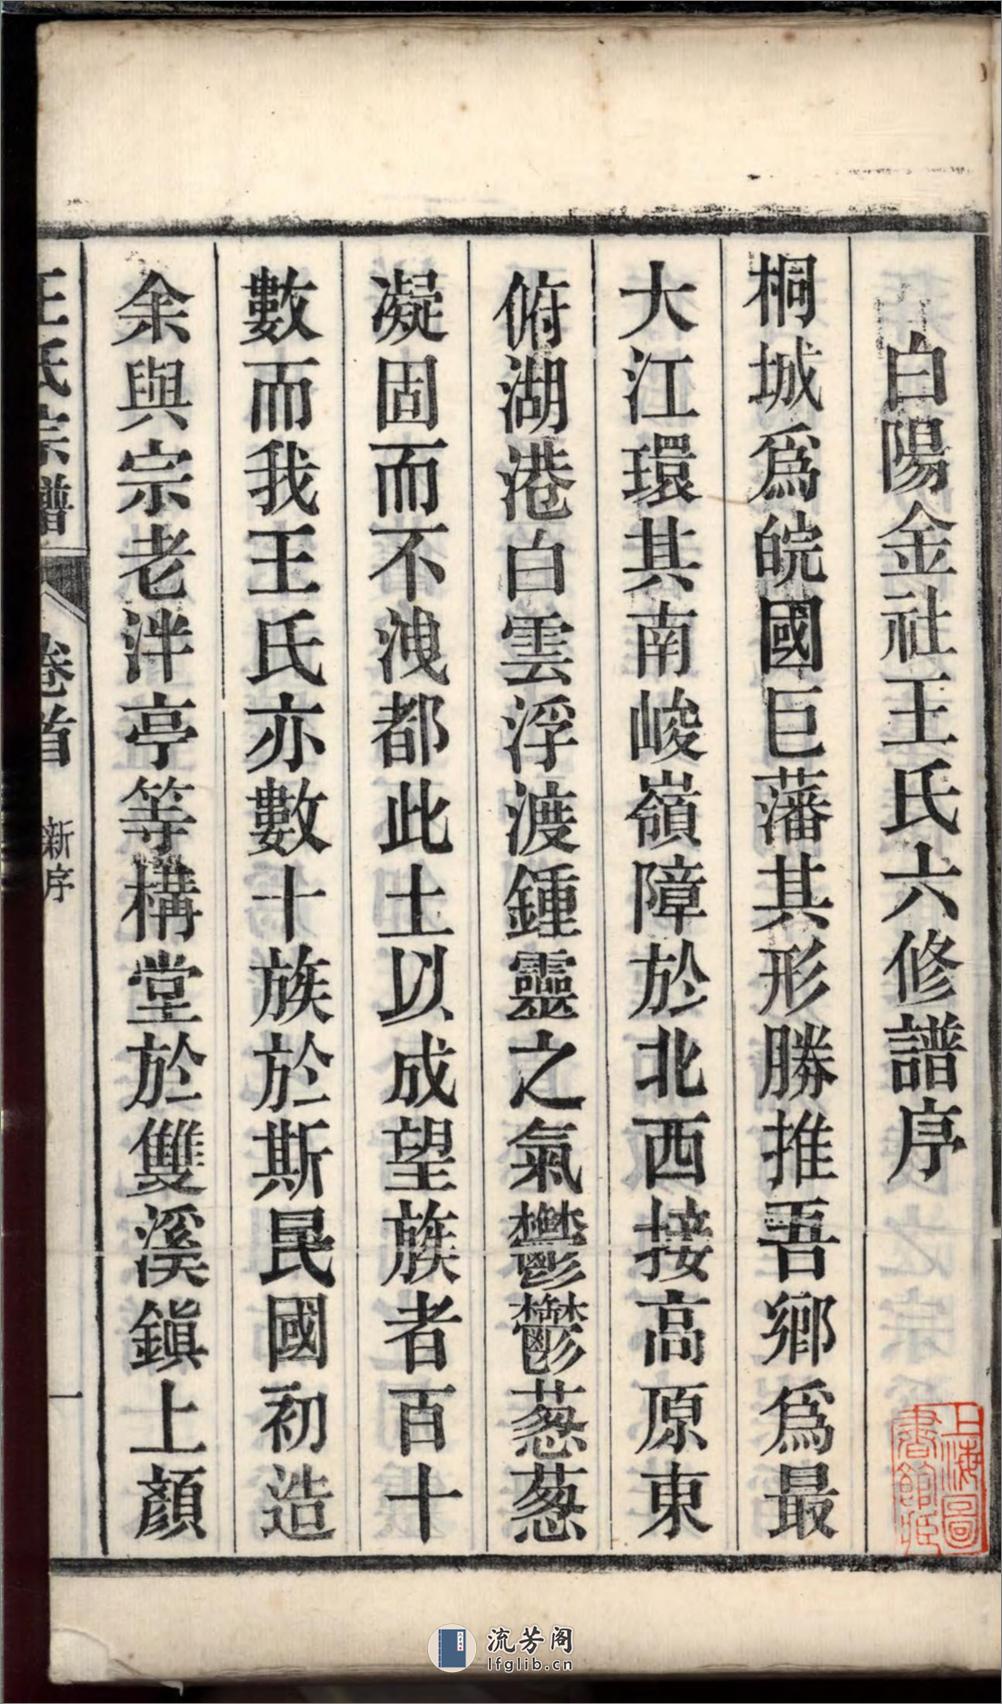 白陽金社王氏六修譜序
桐城爲皖國巨藩其形勝推吾鄉爲最
大江環其南峻嶺障於北西接高原東
俯湖港白雲浮渡鍾靈之氣鬱鬱葱葱
凝固而不洩都此土以成望族者百十
數而我王氏亦數十族於斯民國初造
余與宗老泮亭等構堂於雙溪鎭上顏
王氏宗譜 卷首 新序 一
上海圖
書館藏
流芳阁
lfglib.cn